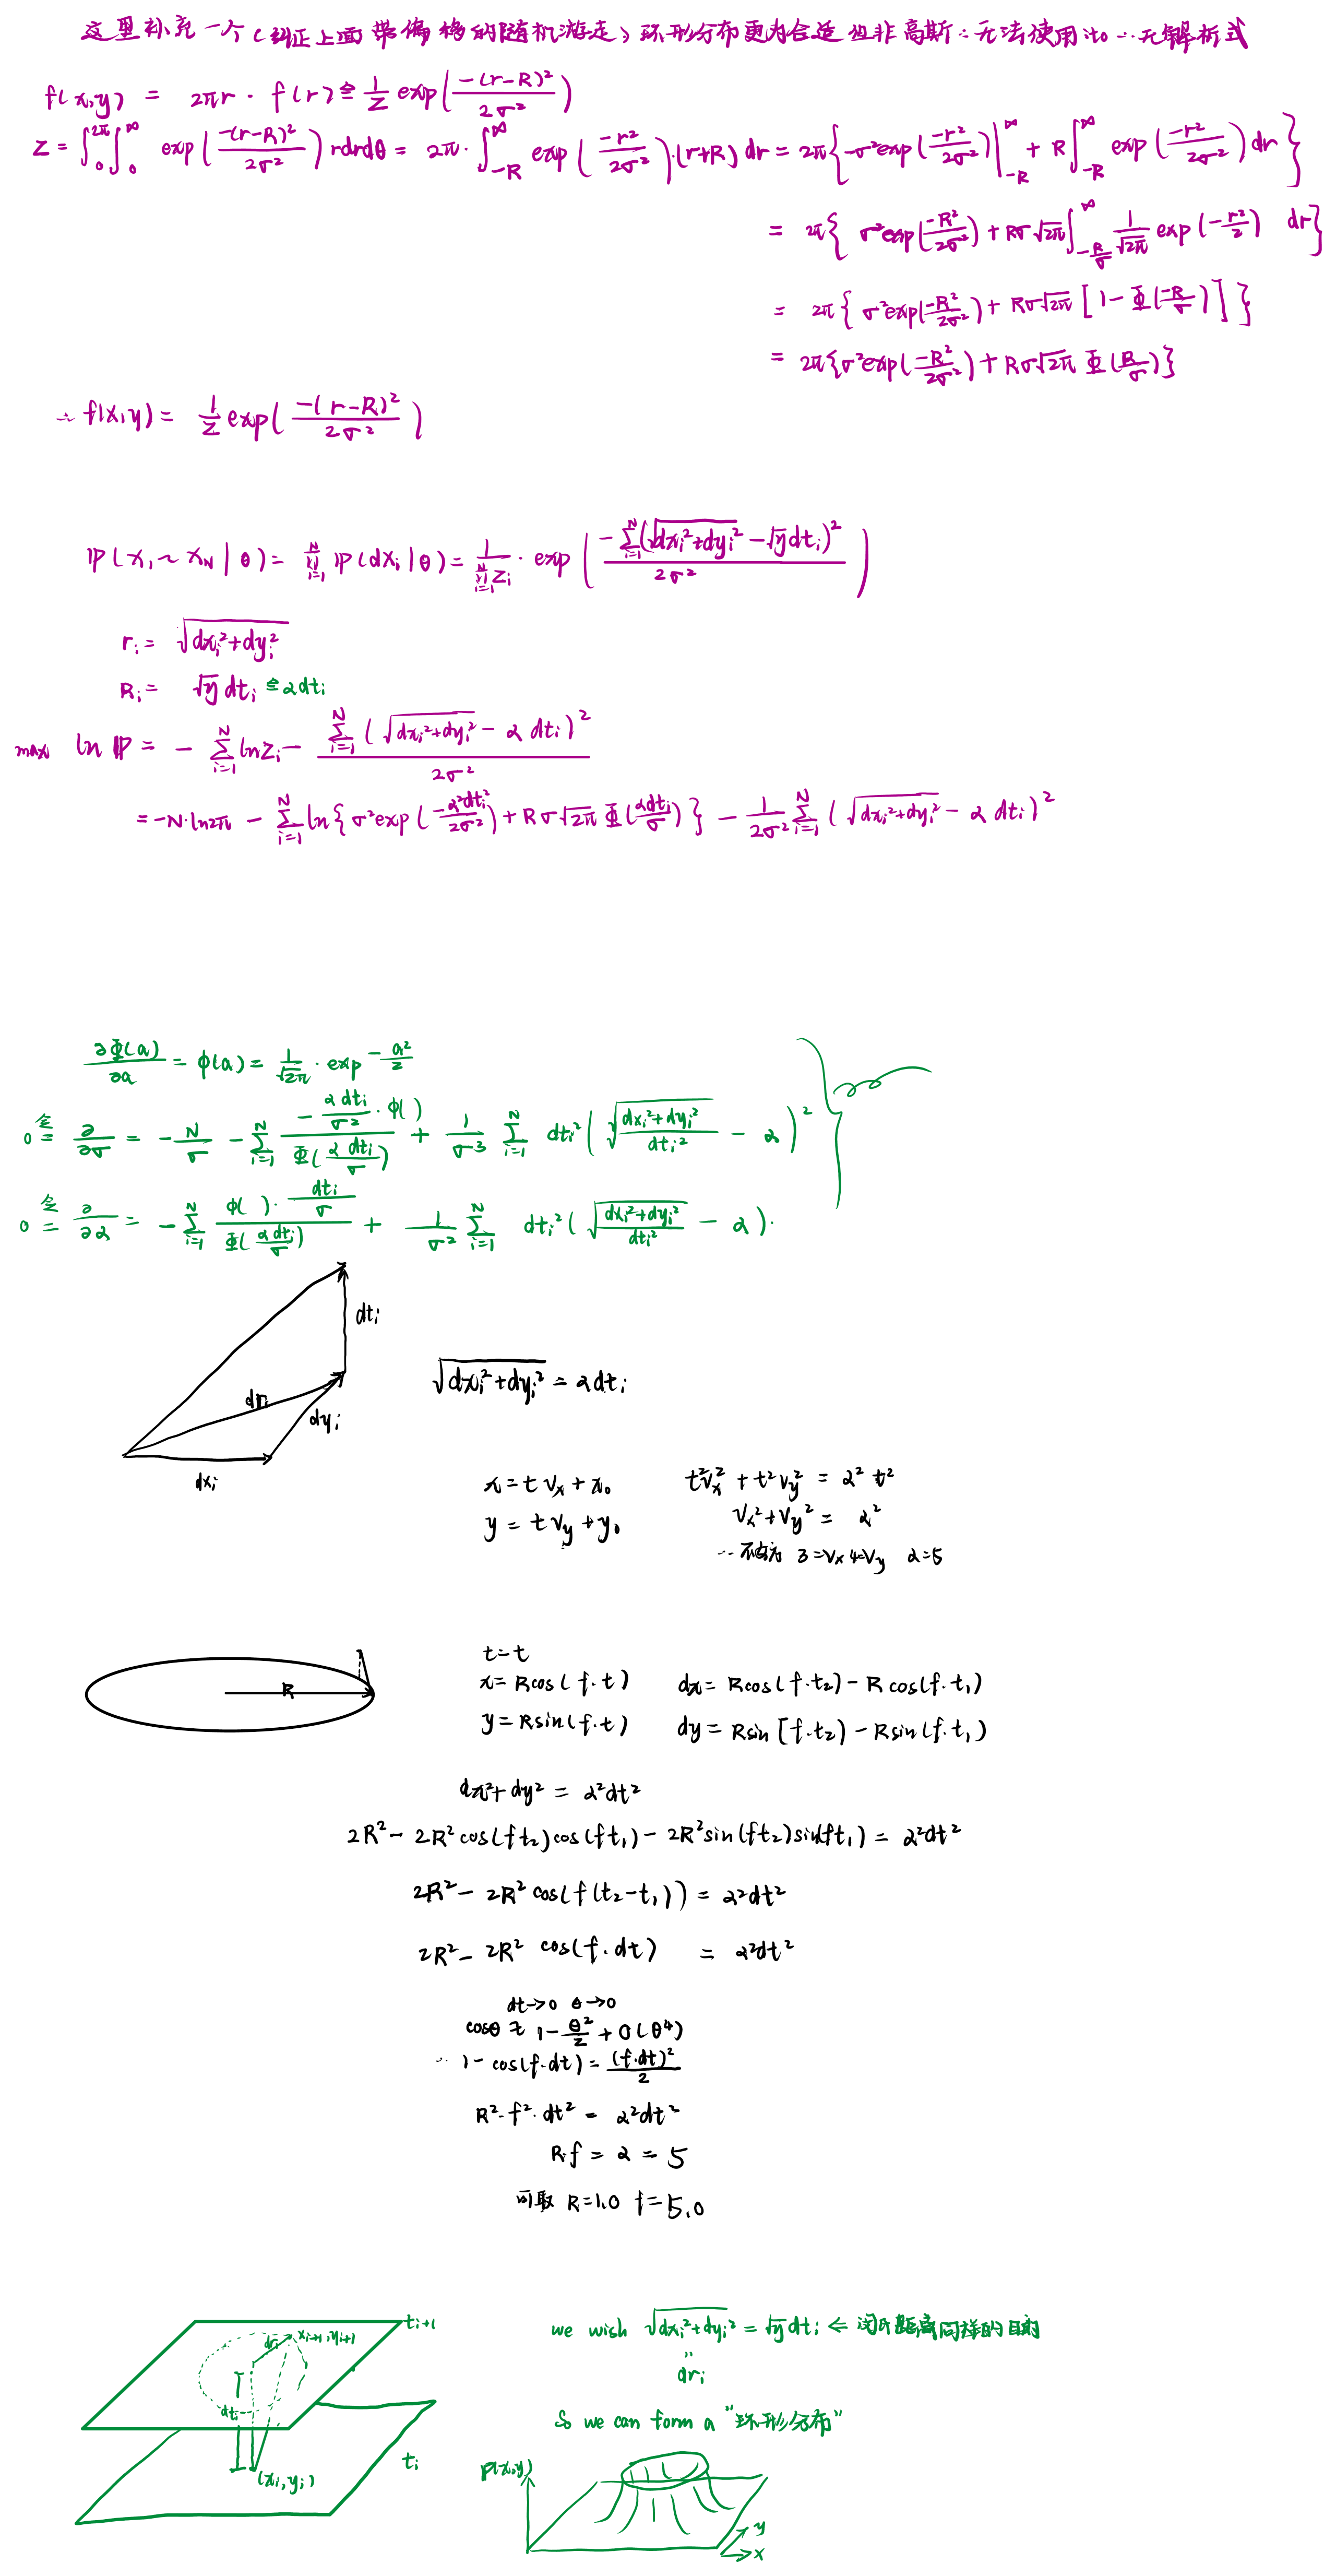 这里补充一个(纠正上面带偏移的随机游走)环形分布更为合适但非高斯∴无法使用ito ∴无解析式
f(x,y) = 2πr · f(r) ≜ 1/Z exp(-(r-R)²/2σ²)
Z = ∫₀^{2π}∫₀^∞ exp(-(r-R)²/2σ²) rdrdθ = 2π·∫_{-R}^∞ exp(-r²/2σ²)·(r+R) dr = 2π{-σ²exp(-r²/2σ²)|_{-R}^∞ + R∫_{-R}^∞ exp(-r²/2σ²) dr}
= 2π{ σ²exp(-R²/2σ²) + Rσ√2π ∫_{-R/σ}^∞ 1/√2π exp(-r²/2) dr}
= 2π{ σ²exp(-R²/2σ²) + Rσ√2π [1-Φ(-R/σ)] }
= 2π{σ²exp(-R²/2σ²) + Rσ√2π Φ(R/σ)}
∴ f(x,y) = 1/Z exp(-(r-R)²/2σ²)
ℙ(x₁~x_N | θ) = ∏_{i=1}^N ℙ(dxᵢ|θ) = 1/∏_{i=1}^N Zᵢ · exp(-∑_{i=1}^N(√(dxᵢ²+dyᵢ²) - √y dtᵢ)² / 2σ²)
rᵢ = √(dxᵢ²+dyᵢ²)
Rᵢ = √y dtᵢ ≜ αdtᵢ
max ln ℙ = - ∑_{i=1}^N lnZᵢ - ∑_{i=1}^N (√(dxᵢ²+dyᵢ²) - α dtᵢ)² / 2σ²
= -N·ln2π - ∑_{i=1}^N ln{σ²exp(-α²dtᵢ²/2σ²) + Rσ√2π Φ(αdtᵢ/σ)} - 1/2σ² ∑_{i=1}^N (√(dxᵢ²+dyᵢ²) - α dtᵢ)²
∂Φ(a)/∂a = φ(a) = 1/√2π · exp -a²/2
0 令= ∂/∂σ = -N/σ - ∑_{i=1}^N (-αdtᵢ/σ² · φ( )) / Φ(αdtᵢ/σ) + 1/σ³ ∑_{i=1}^N dtᵢ²(√((dxᵢ²+dyᵢ²)/dtᵢ²) - α)²
0 令= ∂/∂α = -∑_{i=1}^N (φ( )· dtᵢ/σ) / Φ(αdtᵢ/σ) + 1/σ² ∑_{i=1}^N dtᵢ²(√((dxᵢ²+dyᵢ²)/dtᵢ²) - α).
dtᵢ
drᵢ
dyᵢ
dxᵢ
√(dxᵢ²+dyᵢ²) = αdtᵢ
x = t Vx + x₀
t²Vx² + t²Vy² = α² t²
y = t Vy + y₀
Vx²+Vy² = α²
3=Vx 4=Vy α=5
R
t=t
x= Rcos(f·t)
dx= Rcos(f·t₂) - R cos(f·t₁)
y=Rsin(f·t)
dy= Rsin[f·t₂) - Rsin(f·t₁)
dx²+dy² = α²dt²
2R² - 2R²cos(ft₂)cos(ft₁) - 2R²sin(ft₂)sin(ft₁) = α²dt²
2R² - 2R² cos(f(t₂-t₁)) = α²dt²
2R² - 2R² cos(f·dt) = α²dt²
dt→0 θ→0
cosθ ≈ 1 - θ²/2 + O(θ⁴)
∴ 1-cos(f·dt) = (f·dt)²/2
R²·f²·dt² = α²dt²
R·f = α = 5
可取 R=1.0 f=5.0
tᵢ₊₁
drᵢ
xᵢ₊₁,yᵢ₊₁
dtᵢ
tᵢ
(xᵢ,yᵢ)
we wish √(dxᵢ²+dyᵢ²) = √y dtᵢ ⇐ 闵氏距离同样的目的
drᵢ
So we can form a "环形分布"
p(x,y)
y
x